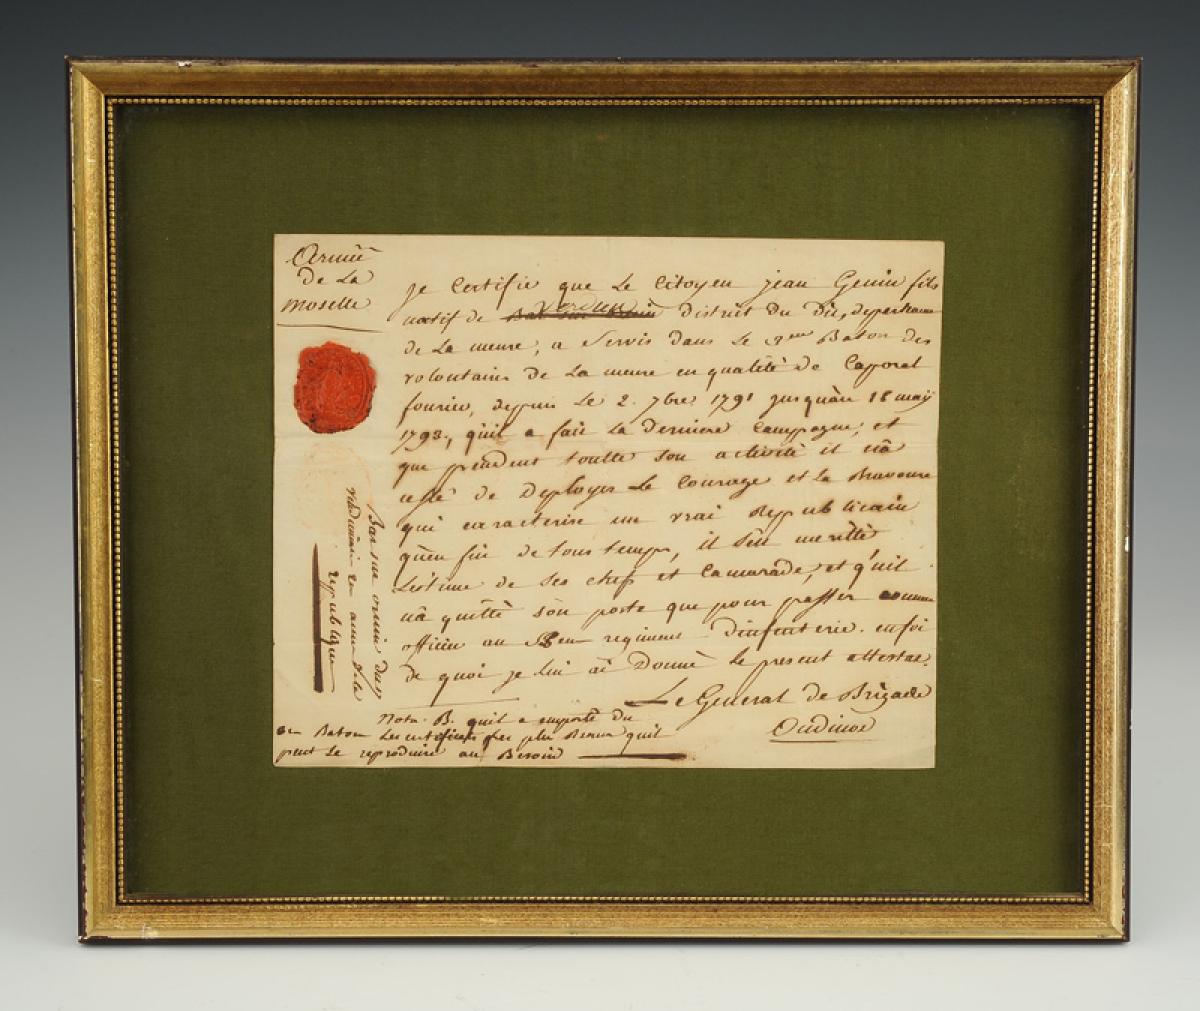 Armée
de La
moselle
je Certifie que Le Citoyen jean Genin fils
Verdun
natif de Bar sur District du Dit, departeme
de La meuse, a servis dans Le 3eme Baton des
volontaires de La meuse en qualité de Caporal
fourier, depuis Le 2. 7bre. 1791 jusqu'au 18 may
1793, qu'il a fait La derniere Campagne, et
que pendent toutte son activité il n'a
cessé de Deployer Le Courage et La Bravoure
qui caracterise un vrai Republicain
qu'en fin de tous temps, il s'en merité
L'estime de ses chefs et Camarade, et qu'il
n'a quitté son poste que pour passer comme
officier au regiment d'infenterie. enfoi
de quoi je lui ai Donné le present attestat.
Le General de Brigade
Oudinot
Nota. B. qu'il a emporté du
Baton Les certificats plus Beaux qu'il
peut se reproduire au Besoin
Bar sur ornin du 17
vendémiaire en année de la
republique